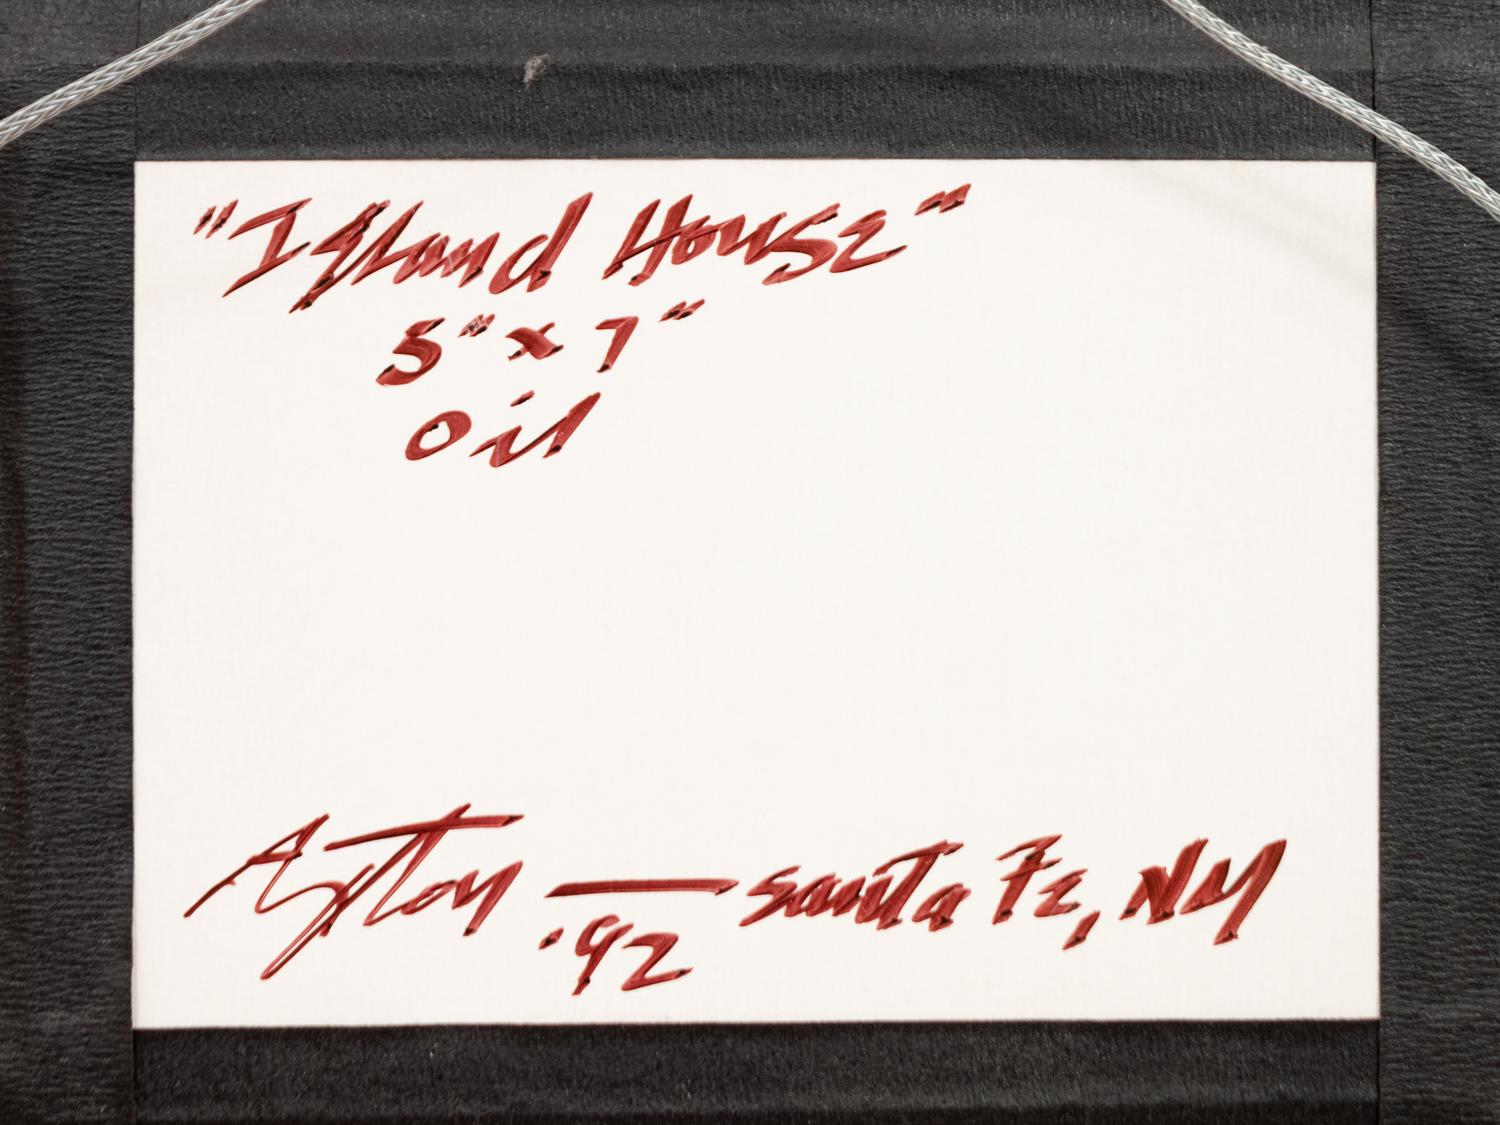 "Island House"
5" x 7"
oil
Ayton — Santa Fe, NM
'92